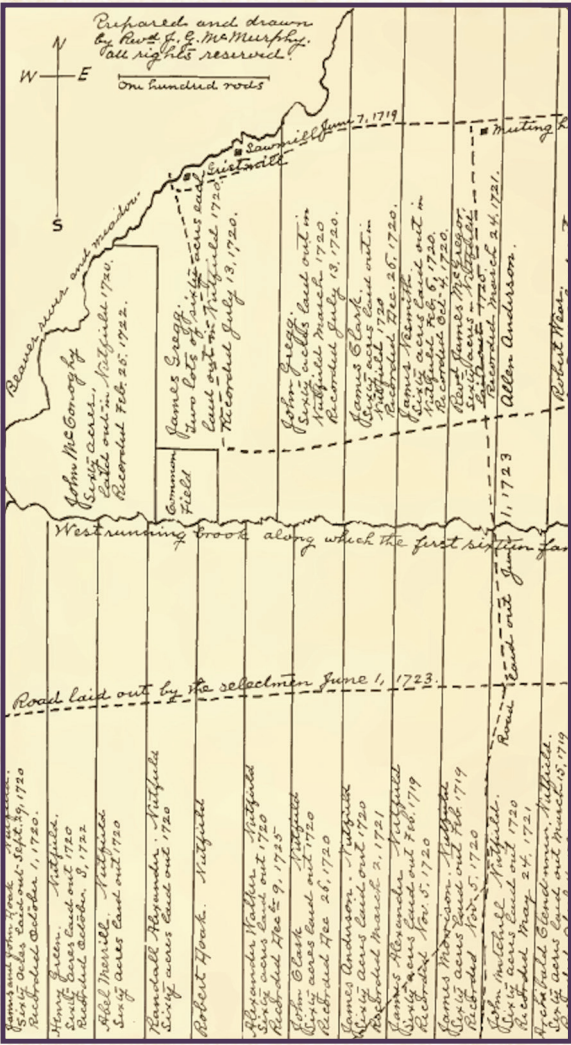 Prepared and drawn
by Revd J. G. McMurphy.
all rights reserved.
N
W
E
S
one hundred rods
June 7, 1719
Sawmill
Gristmill
Muting
Beaver river and meadow.
John McConoghy
Sixty acres.
laid out in Nutfield 1720.
Recorded Feb. 25. 1722.
James Gregg.
Two lots of sixty acres each
laid out in Nutfield 1720
Recorded July 13, 1720.
Common
Field
John Gregg.
Sixty acres laid out in
Nutfield March 1720
Recorded July 13, 1720.
James Clark.
Sixty acres laid out in
Nutfield 1720
Recorded Dec. 26, 1720.
James Nesmith.
Sixty acres laid out in
Nutfield Feb. 6, 1720.
Recorded Oct. 4, 1720.
Revd James McGregor
Sixty acres - Nutfield
laid out 1720.
Recorded March 24, 1721.
Allen Anderson.
Robert Wear.
West running brook along which the first sixteen fam
Road laid out June 1, 1723
Road laid out by the selectmen June 1, 1723.
James and John Hoak Nutfield.
Sixty acres laid out Sept. 29, 1720
Recorded October 1, 1720.
Henry Green. Nutfield.
Sixty acres laid out 1720
Recorded October 3, 1722
Abel Merrill. Nutfield
Sixty acres laid out 1720
Randall Alexander Nutfield
Sixty acres laid out 1720
Robert Hoak. Nutfield
Alexander Walker Nutfield
Sixty acres laid out 1720
Recorded Dec 9, 1725
John Clark Nutfield
Sixty acres laid out 1720
Recorded Dec 26, 1720
James Anderson Nutfield
Sixty acres laid out 1720
Recorded March 2, 1721
James Alexander Nutfield
Sixty acres laid out Feb. 1719
Recorded Nov. 5, 1720
James Morrison Nutfield
Sixty acres laid out Feb 1719
Recorded Nov. 5, 1720
John Mitchell Nutfield.
Sixty acres laid out 1720
Recorded May 24, 1721
Archibald Clendennin, Nutfield.
Sixty acres laid out March 15, 1719